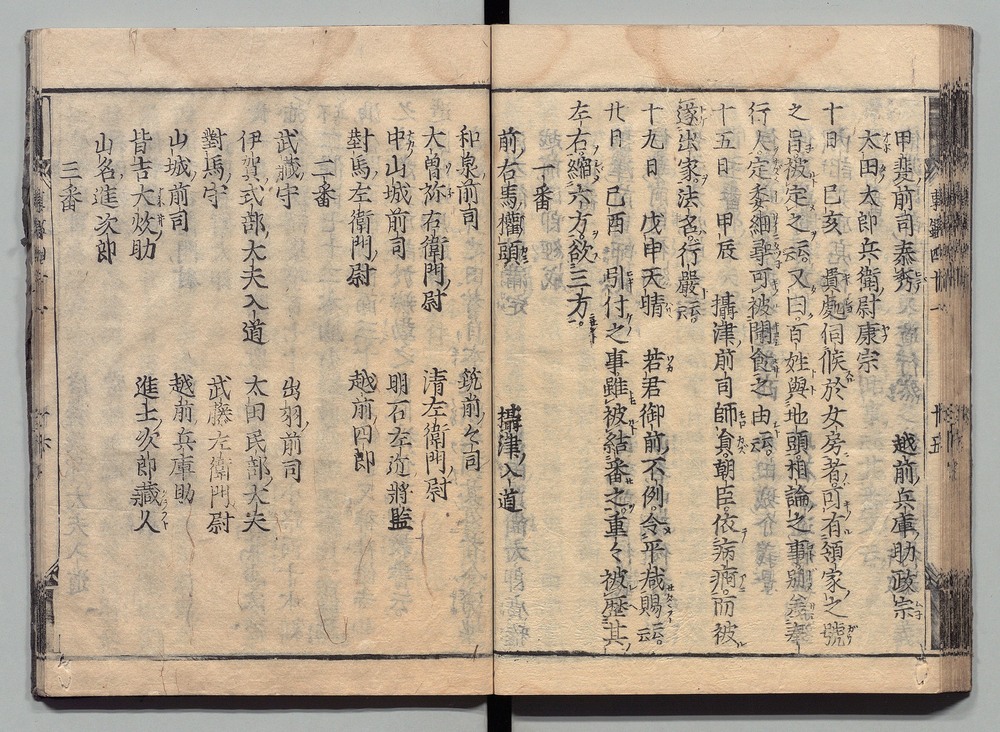 甲斐前司泰秀　　　越前兵庫助政宗
太田太郎兵衛尉康宗
十日　己亥　貴處伺候於女房者。可有領家之號
之旨被定之云云。又曰。百姓與地頭相論之事。
行人定委細尋可被聞食之由云云。
十五日　甲辰　攝津前司師員朝臣。依病痾而被
遂出家。法名行嚴云云。
十九日　戊申天晴　若君御前不例。令平減賜云云。
廿日　己酉　引付之事。雖被結番之。重々被歷其
左右。縮六方。欲三方。
一番
前右馬權頭　　攝津入道
和泉前司　　筑前々司
大曽祢右衛門尉　　清左衛門尉
中山城前司　　明石左近將監
對馬左衛門尉　　越前四郎
二番
武藏守　　出羽前司
伊賀式部大夫入道　　太田民部大夫
對馬守　　武藤左衛門尉
山城前司　　越前兵庫助
皆吉大炊助　　進士次郎藏人
山名進次郎
三番